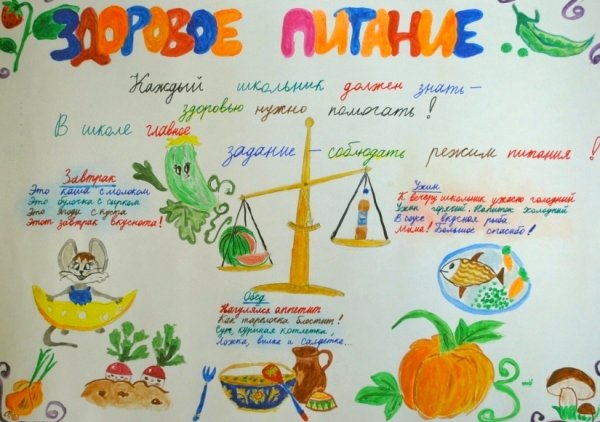 ЗДОРОВОЕ ПИТАНИЕ
Каждый школьник должен знать –
здоровью нужно помогать!
В школе главное
задание – соблюдать режим питания!
Завтрак
Это каша с молоком
Это булочка с сырком
Это ягоды с куста
Этот завтрак вкуснота!
Обед
Нагулялся аппетит
Как тарелочка блестит!
Суп, куриная котлетка
Ложка, вилка и салфетка...
Ужин
К вечеру школьник ужасно голодный
Ужин горячий. Напиток холодный
В соусе вкусная рыба
Мама! Большое спасибо!